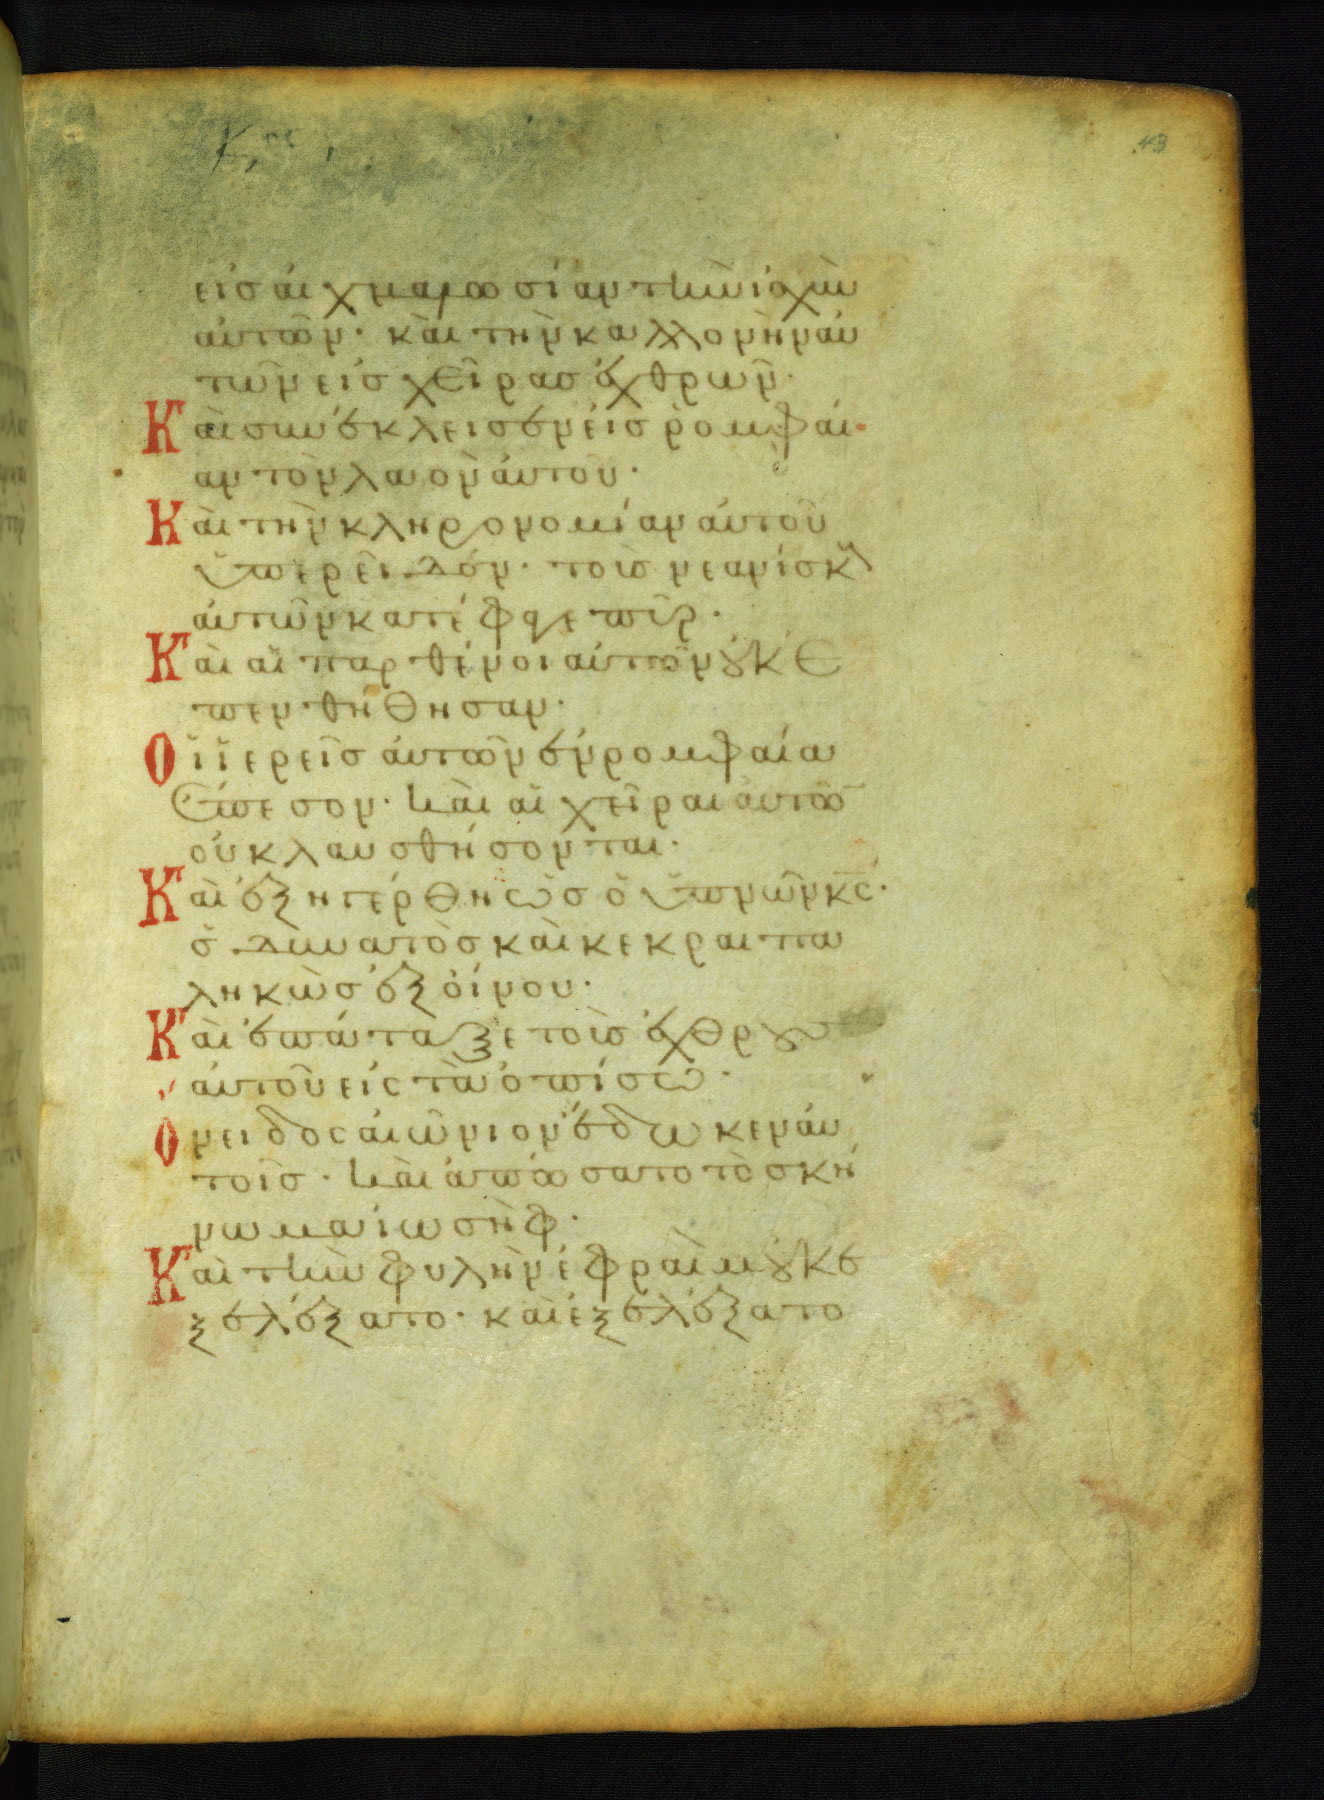 43
εἰσ αἰχμαλωσίαν τὴν ἰσχὺν
αὐτῶν· καὶ τὴν καλλονὴν αὐ
τῶν εἰσ χεῖρασ ἐχθρῶν·
Καὶ συνέκλεισεν εἰσ ῥομφαί
αν τὸν λαὸν αὐτοῦ·
Καὶ τὴν κληρονομίαν αὐτοῦ
ὑπερεῖδεν· τοὺσ νεανίσκουσ
αὐτῶν κατέφαγε πῦρ·
Καὶ αἱ παρθένοι αὐτῶν οὐκ ἐ
πενθήθησαν·
Οἱ ἱερεῖσ αὐτῶν ἐν ρομφαία
ἔπεσον· καὶ αἱ χεῖραι αὐτῶ
οὐ κλαυσθήσονται·
Καὶ ἐξηγέρθη ὡσ ὁ ὑπνῶν κς·
ὡσ δυνατὸσ καὶ κεκραιπα
ληκὼσ ἐξ οἴνου·
Καὶ ἐπάταξε τοὺσ ἐχθροὺσ
αὐτοῦ εἰς τὰ ὀπίσω·
Ὄνειδος αἰώνιον ἔδωκεν αὐ
τοῖσ· καὶ ἀπώσατο τὸ σκή
νωμα ἰωσὴφ·
Καὶ τὴν φυλὴν ἐφραὶμ οὐκ ἐ
ξελέξατο· καὶ ἐξελέξατο